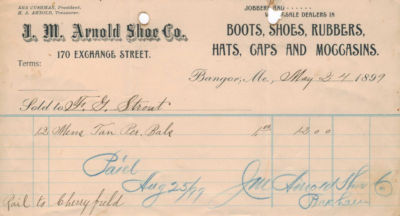 ARA CUSHMAN, President.
H. L. ARNOLD, Treasurer.
JOBBERS AND WHOLESALE DEALERS IN
J. M. Arnold Shoe Co.
170 EXCHANGE STREET.
BOOTS, SHOES, RUBBERS,
HATS, CAPS AND MOCCASINS.
Terms:
Bangor, Me., May 27 1899
Sold to F. G. Strout
12 Mens Tan Per. Bals 1.00 12 00
Paid
Aug 25/99 J M Arnold Shoe Co
Rail to Cherryfield